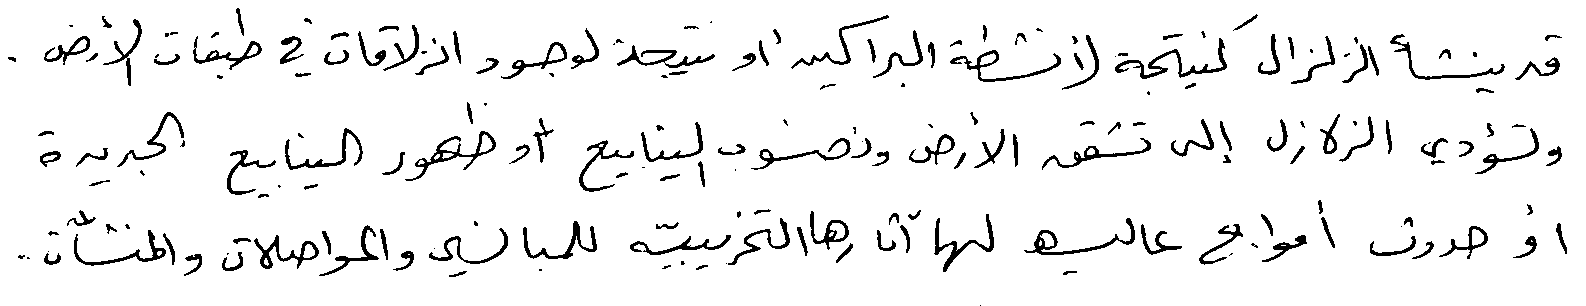 قد ينشأ الزلزال كنتيجة لأنشطة البراكين أو نتيجة لوجود انزلاقات في طبقات الأرض .
وتؤدي الزلازل إلى تشقق الأرض ونضوب الينابيع أو ظهور الينابيع الجديدة
أو حدوث أمواج عالية لها آثارها التخريبية للمباني والمواصلات والمنشآت ..